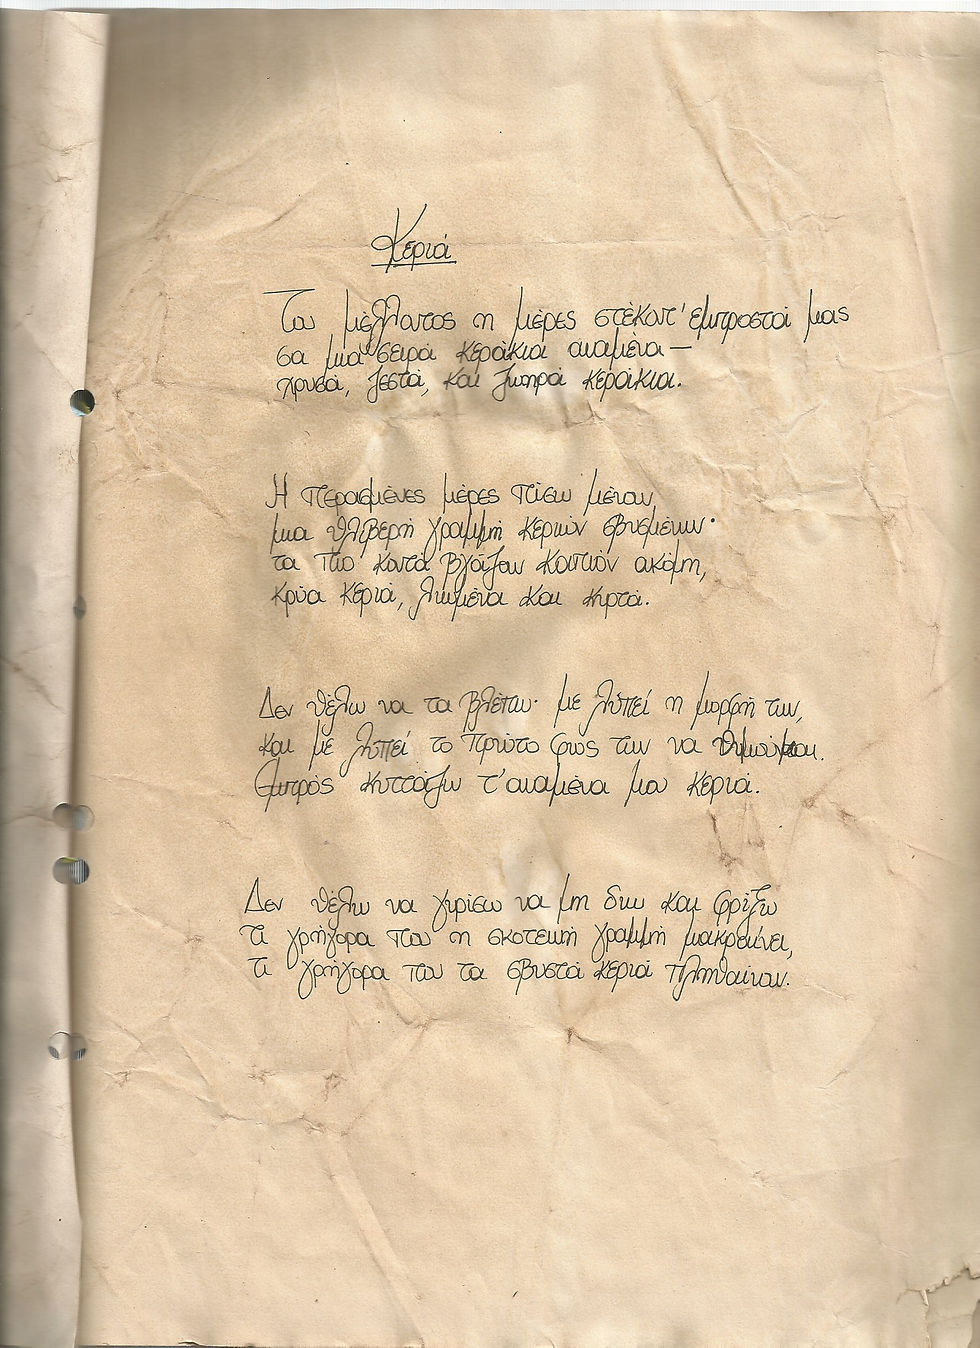 Κεριά
Του μέλλοντος η μέρες στέκοντ' εμπροστά μας
σα μιά σειρά κεράκια αναμένα —
χρυσά, ζεστά, και ζωηρά κεράκια.
Η περασμένες μέρες πίσω μένουν,
μια θλιβερή γραμμή κεριών σβυσμένων·
τα πιο κοντά βγάζουν καπνόν ακόμη,
κρύα κεριά, λιωμένα και κυρτά.
Δεν θέλω να τα βλέπω· με λυπεί η μορφή των,
και με λυπεί το πρώτο φως των να θυμούμαι.
Εμπρός κυττάζω τ' αναμένα μου κεριά.
Δεν θέλω να γυρίσω να μη διω και φρίξω
τι γρήγορα που η σκοτεινή γραμμή μακραίνει,
τι γρήγορα που τα σβυστά κεριά πληθαίνουν.